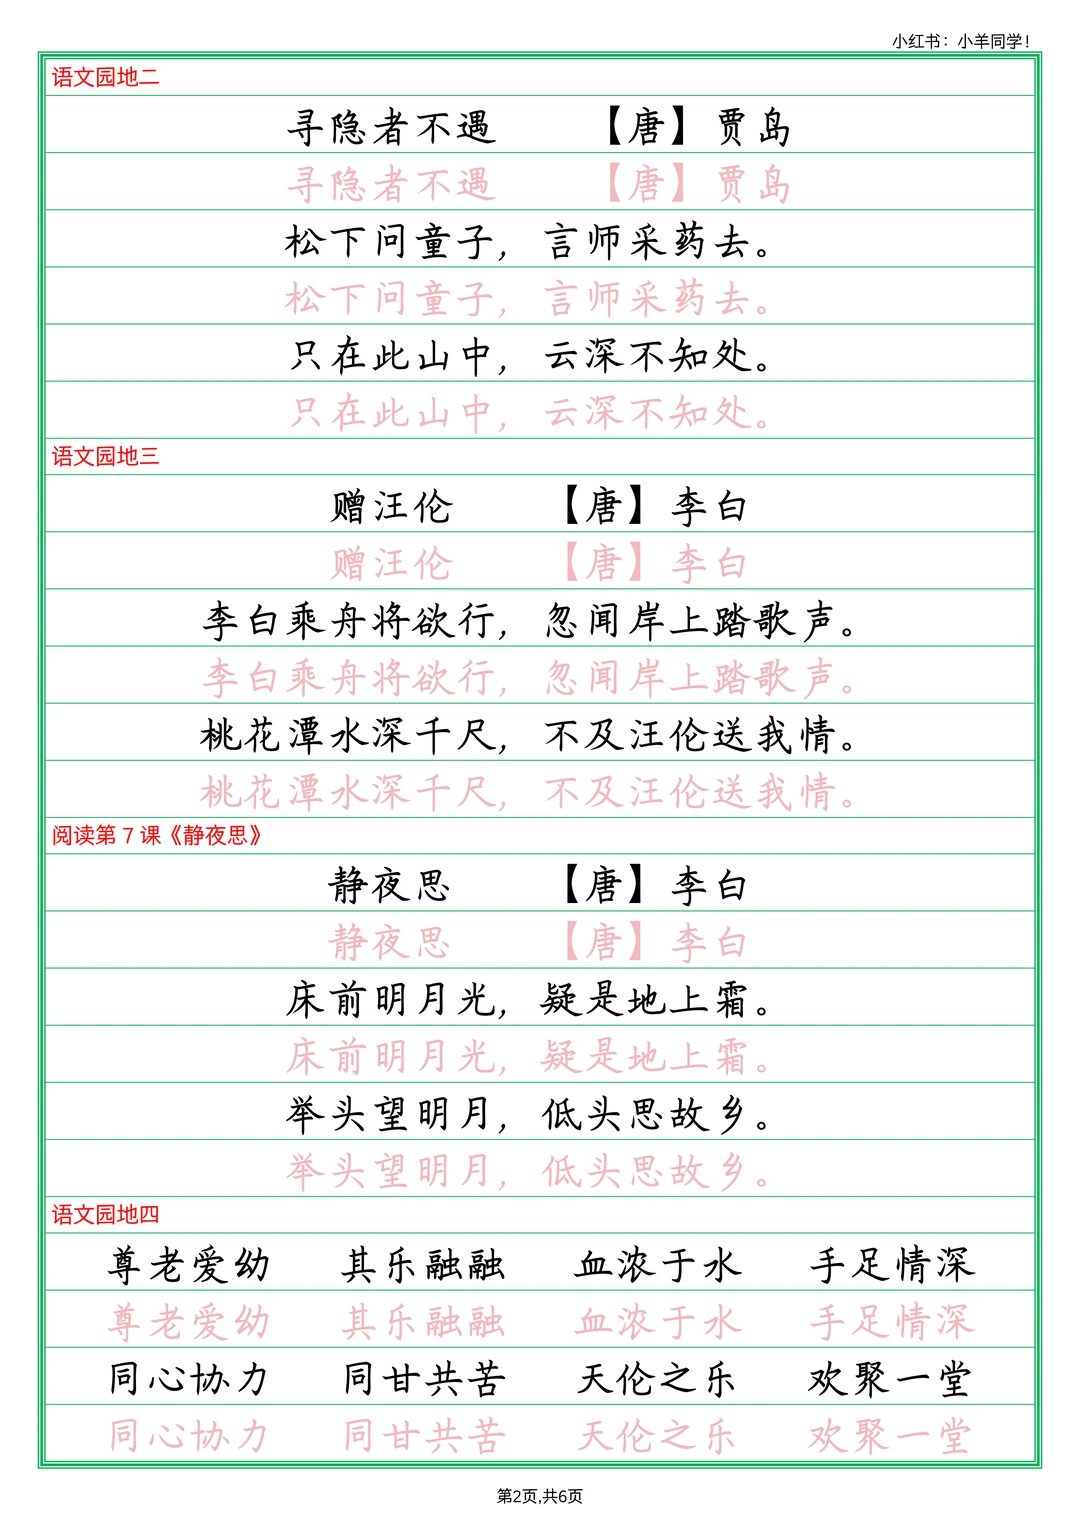 小红书：小羊同学！
语文园地二
寻隐者不遇 【唐】贾岛
寻隐者不遇 【唐】贾岛
松下问童子，言师采药去。
松下问童子，言师采药去。
只在此山中，云深不知处。
只在此山中，云深不知处。
语文园地三
赠汪伦 【唐】李白
赠汪伦 【唐】李白
李白乘舟将欲行，忽闻岸上踏歌声。
李白乘舟将欲行，忽闻岸上踏歌声。
桃花潭水深千尺，不及汪伦送我情。
桃花潭水深千尺，不及汪伦送我情。
阅读第7课《静夜思》
静夜思 【唐】李白
静夜思 【唐】李白
床前明月光，疑是地上霜。
床前明月光，疑是地上霜。
举头望明月，低头思故乡。
举头望明月，低头思故乡。
语文园地四
尊老爱幼 其乐融融 血浓于水 手足情深
尊老爱幼 其乐融融 血浓于水 手足情深
同心协力 同甘共苦 天伦之乐 欢聚一堂
同心协力 同甘共苦 天伦之乐 欢聚一堂
第2页,共6页